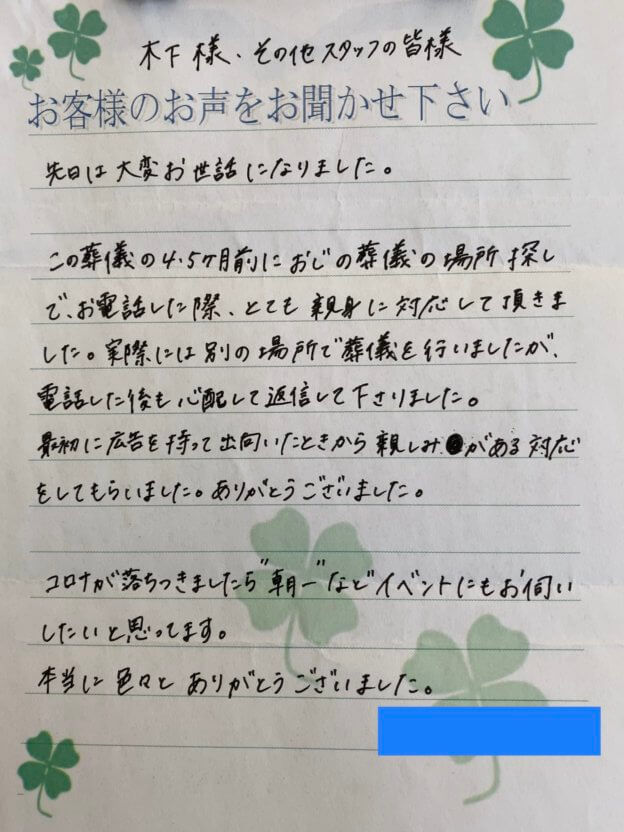 木下様、その他スタッフの皆様
お客様のお声をお聞かせ下さい
先日は大変お世話になりました。
この葬儀の4.5ヶ月前におじの葬儀の場所探し
で、お電話した際、とても親身に対応して頂きま
した。実際には別の場所で葬儀を行いましたが、
電話した後も心配して返信して下さりました。
最初に広告を持って出向いたときから親しみがある対応
をしてもらいました。ありがとうございました。
コロナが落ちつきましたら"朝一"などイベントにもお伺い
したいと思ってます。
本当に色々とありがとうございました。